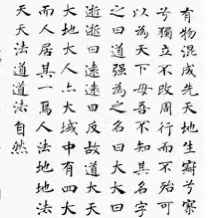 有物混成先天地生寂兮寥
兮獨立不改周行而不殆可
以為天下母吾不知其名字
之曰道強為之名曰大大曰
逝逝曰遠遠曰反故道大天
大地大人亦大域中有四大
而人居其一焉人法地地法
天天法道道法自然